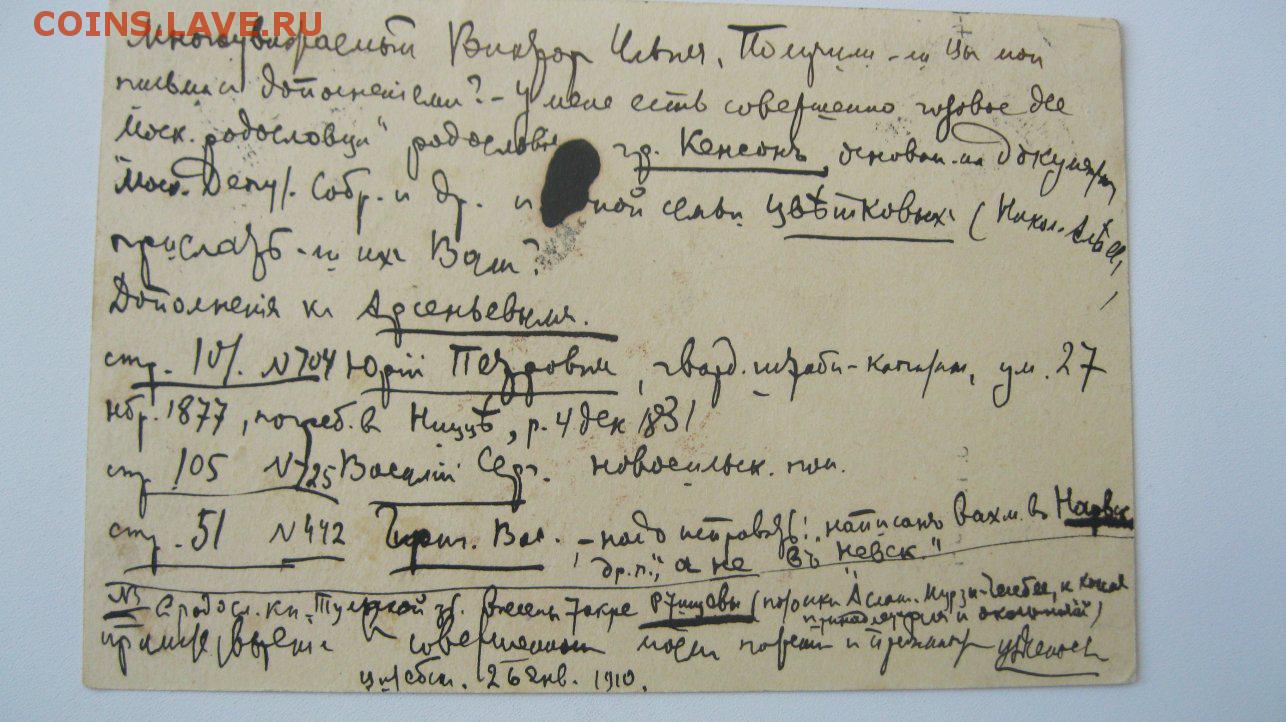 COINS.LAVE.RU
Многоуважаемый Виктор Ильич, Получили-ли Вы мои
письма с дополнениями? – У меня есть совершенно готовое для
"Моск. родословца" родословие гр. Кенсонъ, основан. на документ.
Моск. Депут. Собр. и др. и ной семьи Цвѣтковыхъ (Никол. Алѣе.,
прислать-ли ихъ Вам?
Дополнения къ Арсеньевымъ.
стр. 101. N 704 Юрій Петровичъ, гвард. штабс-капитан, ум. 27
нбр. 1877, погреб. въ Ниццѣ, р. 4 дек 1831
стр. 105 N 725 Василій Серг. новосильск. пом.
стр. 51 N 442 Григ. Вас. – надо исправить: "написанъ вахм. въ Нарвск.
др. п.", а не "въ Невск"
NB Въ родосл. кн. Тульской губ. внесены также Ртищевы (потомки Аслан. Мурзы-Челебея, к
принадлежу и)
примите увѣрение в совершенном почтении и
26 Янв. 1910.